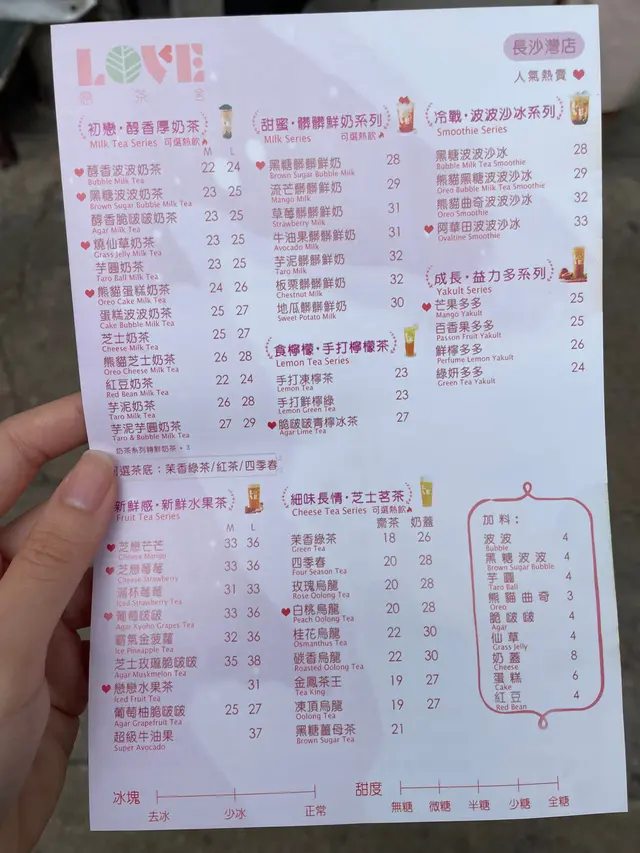 LOVE
長沙灣店
人氣熱賣
初戀·醇香厚奶茶
Milk Tea Series 可選熱飲
M L
醇香波波奶茶 22 24
Bubble Milk Tea
黑糖波波奶茶 23 25
Brown Sugar Bubble Milk Tea
醇香脆啵啵奶茶 23 25
Agar Milk Tea
燒仙草奶茶 23 25
Grass Jelly Milk Tea
芋圓奶茶 23 25
Taro Ball Milk Tea
熊貓蛋糕奶茶 24 26
Oreo Cake Milk Tea
蛋糕波波奶茶 25 27
Cake Bubble Milk Tea
芝士奶茶 25 27
Cheese Milk Tea
熊貓芝士奶茶 26 28
Oreo Cheese Milk Tea
紅豆奶茶 22 24
Red Bean Milk Tea
芋泥奶茶 26 28
Taro Milk Tea
芋泥芋圓奶茶 27 29
Taro & Bubble Milk Tea
奶茶系列轉鮮奶茶 +
選茶底：茉香綠茶/紅茶/四季春
甜蜜·髒髒鮮奶系列
Milk Series 可選熱飲
黑糖髒髒鮮奶 28
Brown Sugar Bubble Milk
流芒髒髒鮮奶 29
Mango Milk
草莓髒髒鮮奶 31
Strawberry Milk
牛油果髒髒鮮奶 31
Avocado Milk
芋泥髒髒鮮奶 32
Taro Milk
板栗髒髒鮮奶 32
Chestnut Milk
地瓜髒髒鮮奶 30
Sweet Potato Milk
食檸檬·手打檸檬茶
Lemon Tea Series
手打凍檸茶 23
Lemon Tea
手打鮮檸綠 23
Lemon Green Tea
脆啵啵青檸冰茶 27
Agar Lime Tea
冷戰·波波沙冰系列
Smoothie Series
黑糖波波沙冰 28
Bubble Milk Tea Smoothie
熊貓黑糖波波沙冰 29
Oreo Bubble Milk Tea Smoothie
熊貓曲奇波波沙冰 32
Oreo Smoothie
阿華田波波沙冰 33
Ovaltine Smoothie
成長·益力多系列
Yakult Series
芒果多多 25
Mango Yakult
百香果多多 25
Passon Fruit Yakult
鮮檸多多 26
Perfume Lemon Yakult
綠妍多多 24
Green Tea Yakult
新鮮感·新鮮水果茶
Fruit Tea Series
M L
芝戀芒芒 33 36
Cheese Mango
芝戀莓莓 33 36
Cheese Strawberry
滿杯莓莓 31 33
Iced Strawberry Tea
葡萄啵啵 33 36
Agar Kyoho Grapes Tea
霸氣金菠蘿 32 36
Ice Pineapple Tea
芝士玫瓏脆啵啵 35 38
Agar Muskmelon Tea
戀戀水果茶 31
Iced Fruit Tea
葡萄柚脆啵啵 25 27
Agar Grapefruit Tea
超級牛油果 37
Super Avocado
細味長情·芝士茗茶
Cheese Tea Series
齋茶 奶蓋
茉香綠茶 18 26
Green Tea
四季春 20 28
Four Season Tea
玫瑰烏龍 20 28
Rose Oolong Tea
白桃烏龍 20 28
Peach Oolong Tea
桂花烏龍 22 30
Osmanthus Tea
碳香烏龍 22 30
Roasted Oolong Tea
金鳳茶王 19 27
Tea King
凍頂烏龍 19 27
Oolong Tea
黑糖薑母茶 21
Brown Sugar Tea
加料：
波波 4
Bubble
黑糖波波 4
Brown Sugar Bubble
芋圓 4
Taro Ball
熊貓曲奇 3
Oreo
脆啵啵 4
Agar
仙草 4
Grass Jelly
奶蓋 8
Cheese
蛋糕 6
Cake
紅豆 4
Red Bean
冰塊
去冰 少冰 正常
甜度
無糖 微糖 半糖 少糖 全糖